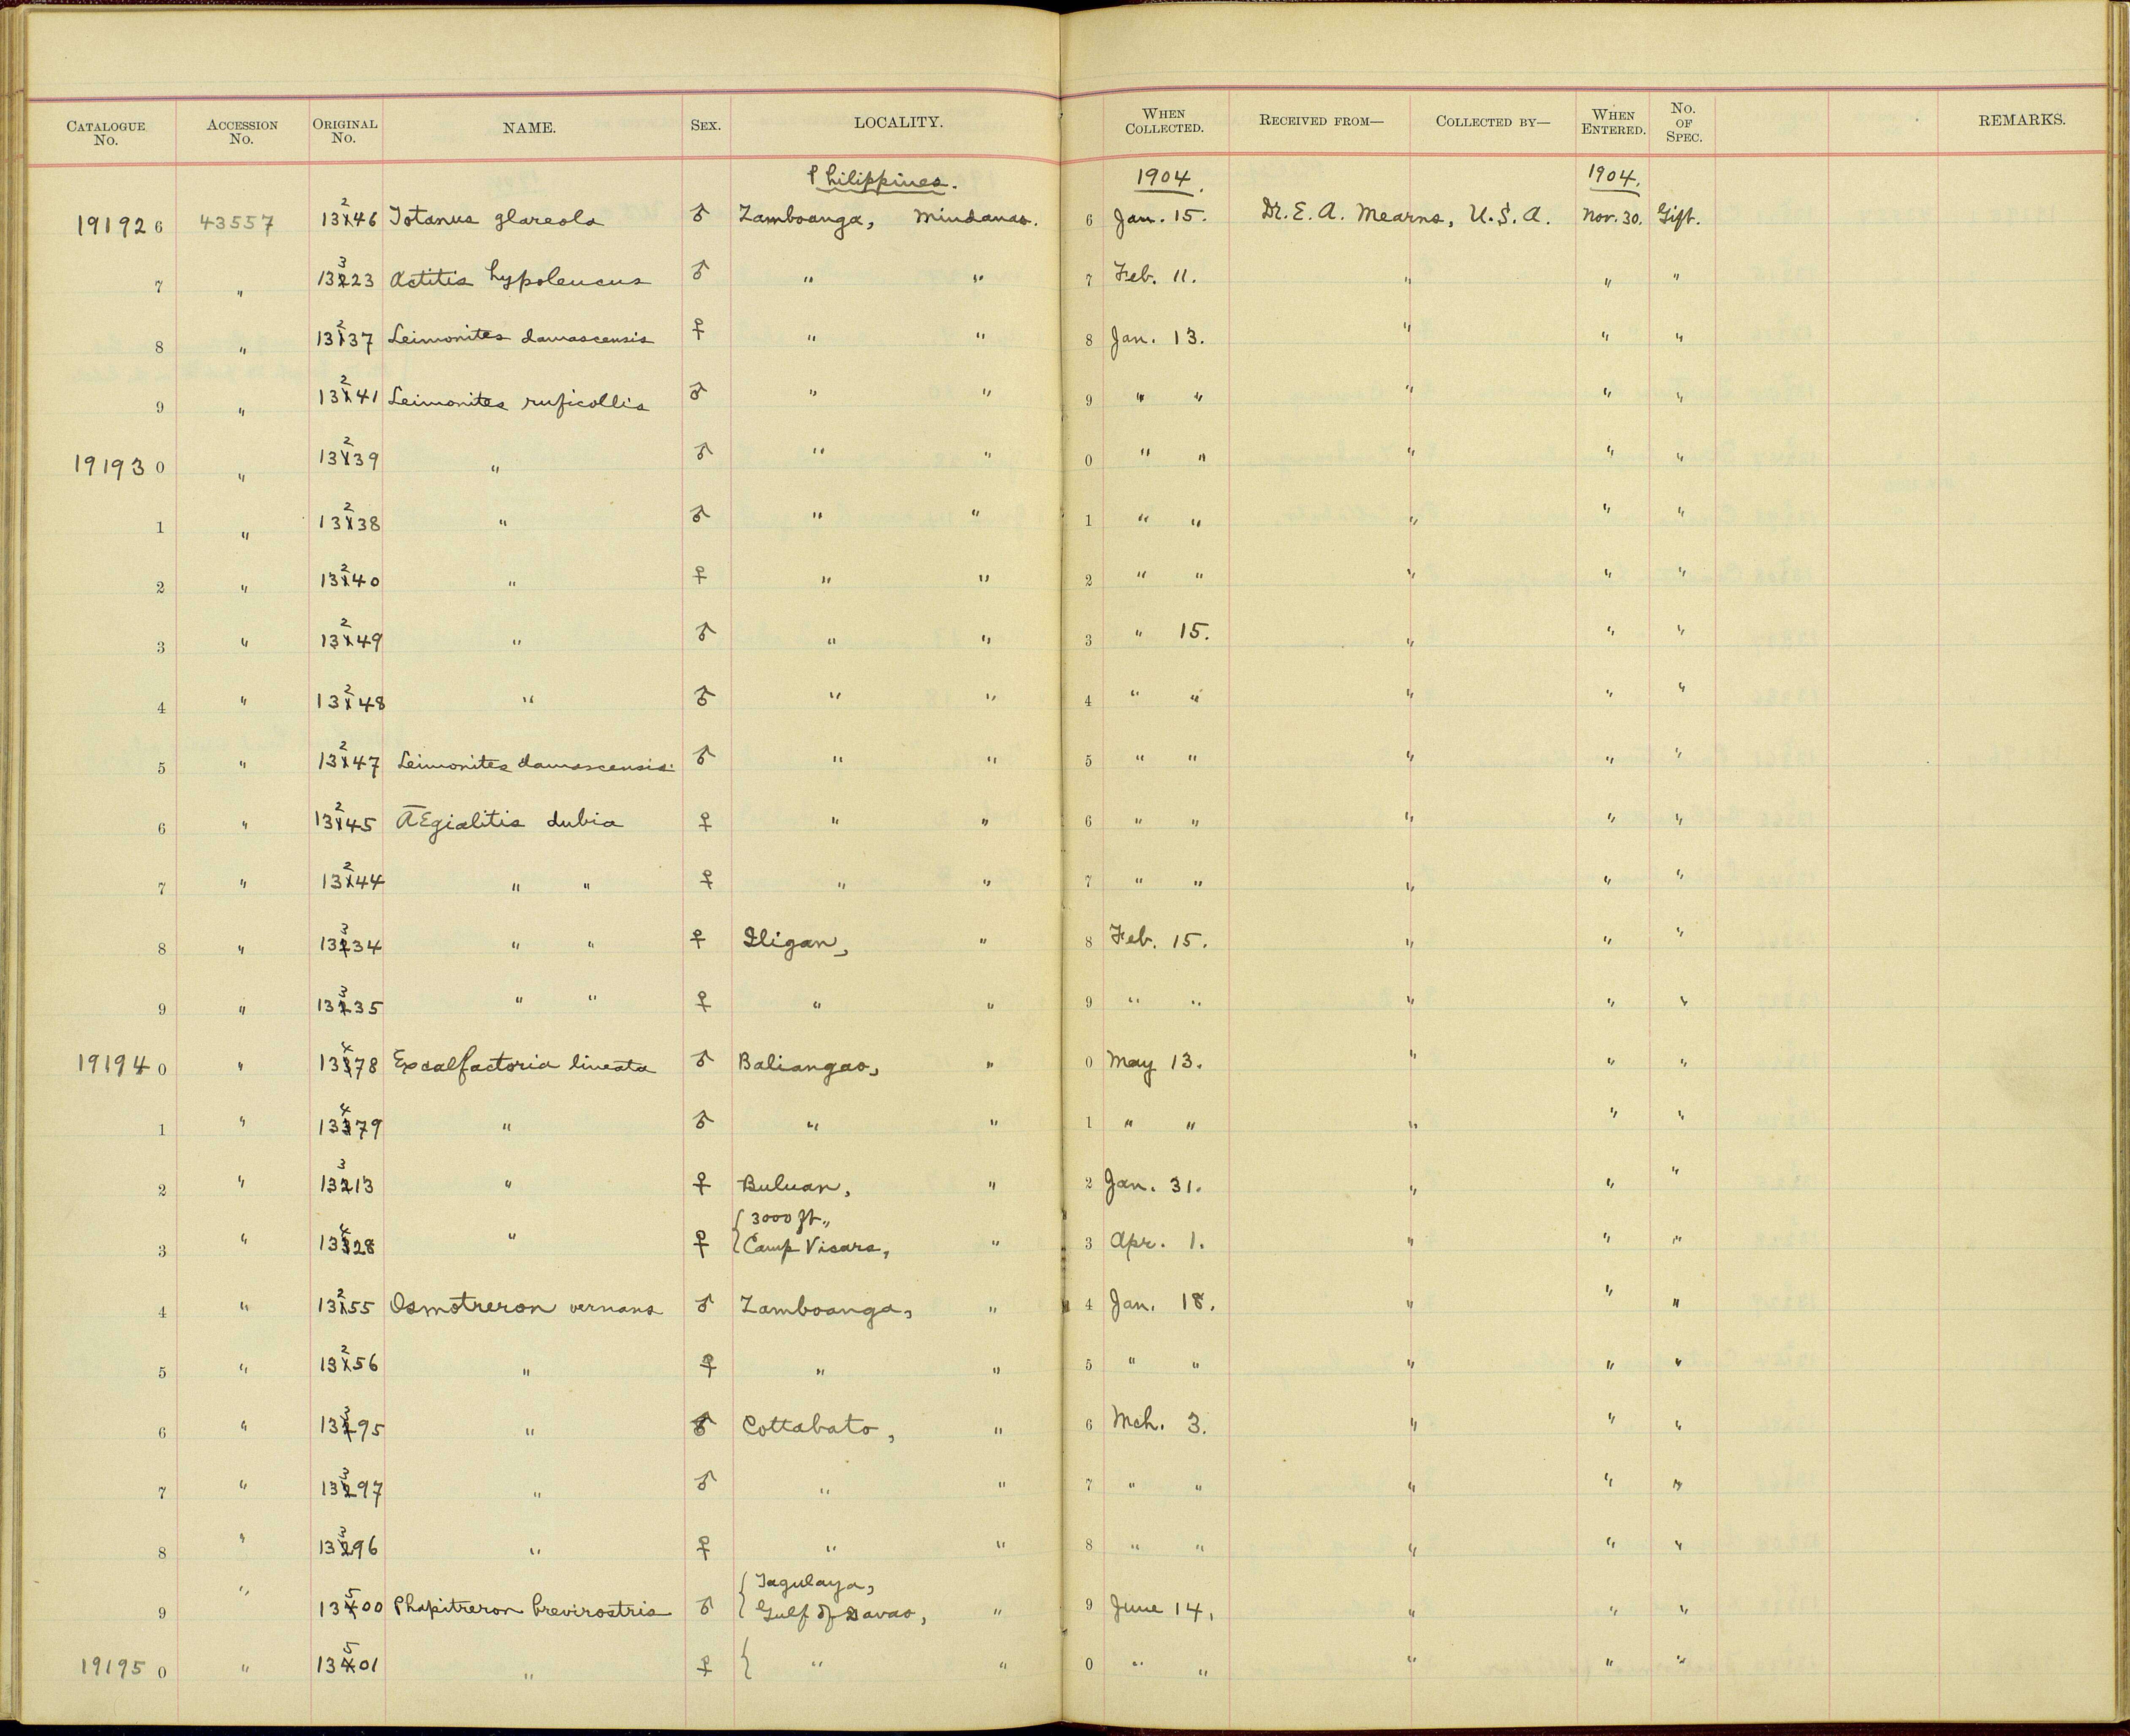 CATALOGUE No. ACCESSION No. ORIGINAL No. NAME. SEX. LOCALITY. WHEN COLLECTED. RECEIVED FROM— COLLECTED BY— WHEN ENTERED. No. OF SPEC. REMARKS.
Philippines. 1904. 1904.
191926 43557 13246 Totanus glareola ♂ Zamboanga, Mindanao. 6 Jan. 15. Dr. E. A. Mearns, U.S.A. Nov. 30. Gift.
7 " 13323 Actitis hypoleucus ♂ " " 7 Feb. 11. " " "
8 " 13237 Leimonites damascensis ♀ " " 8 Jan. 13. " " "
9 " 13241 Leimonites ruficollis ♂ " " 9 " " " " "
191930 " 13239 " ♂ " " 0 " " " " "
1 " 13238 " ♂ " " 1 " " " " "
2 " 13240 " ♀ " " 2 " " " " "
3 " 13249 " ♂ " " 3 " 15. " " "
4 " 13248 " ♂ " " 4 " " " " "
5 " 13247 Leimonites damascensis ♂ " " 5 " " " " "
6 " 13245 Ægialitis dubia ♀ " " 6 " " " " "
7 " 13244 " " ♀ " " 7 " " " " "
8 " 13334 " " ♀ Iligan, " 8 Feb. 15. " " "
9 " 13335 " " ♀ " " 9 " " " " "
191940 " 13478 Excalfactoria lineata ♂ Baliangao, " 0 May 13. " " "
1 " 13479 " ♂ " " 1 " " " " "
2 " 13313 " ♀ Buluan, " 2 Jan. 31. " " "
3000 ft.,
3 " 13428 " ♀ Camp Vicars, " 3 Apr. 1. " " "
4 " 13255 Osmotreron vernans ♂ Zamboanga, " 4 Jan. 18. " " "
5 " 13256 " ♀ " " 5 " " " " "
6 " 13395 " ♂ Cottabato, " 6 Mch. 3. " " "
7 " 13397 " ♂ " " 7 " " " " "
8 " 13396 " ♀ " " 8 " " " " "
Tagulaya,
9 " 13500 Phapitreron brevirostris ♂ Gulf of Davao, " 9 June 14. " " "
191950 " 13501 " ♀ " " 0 " " " " "